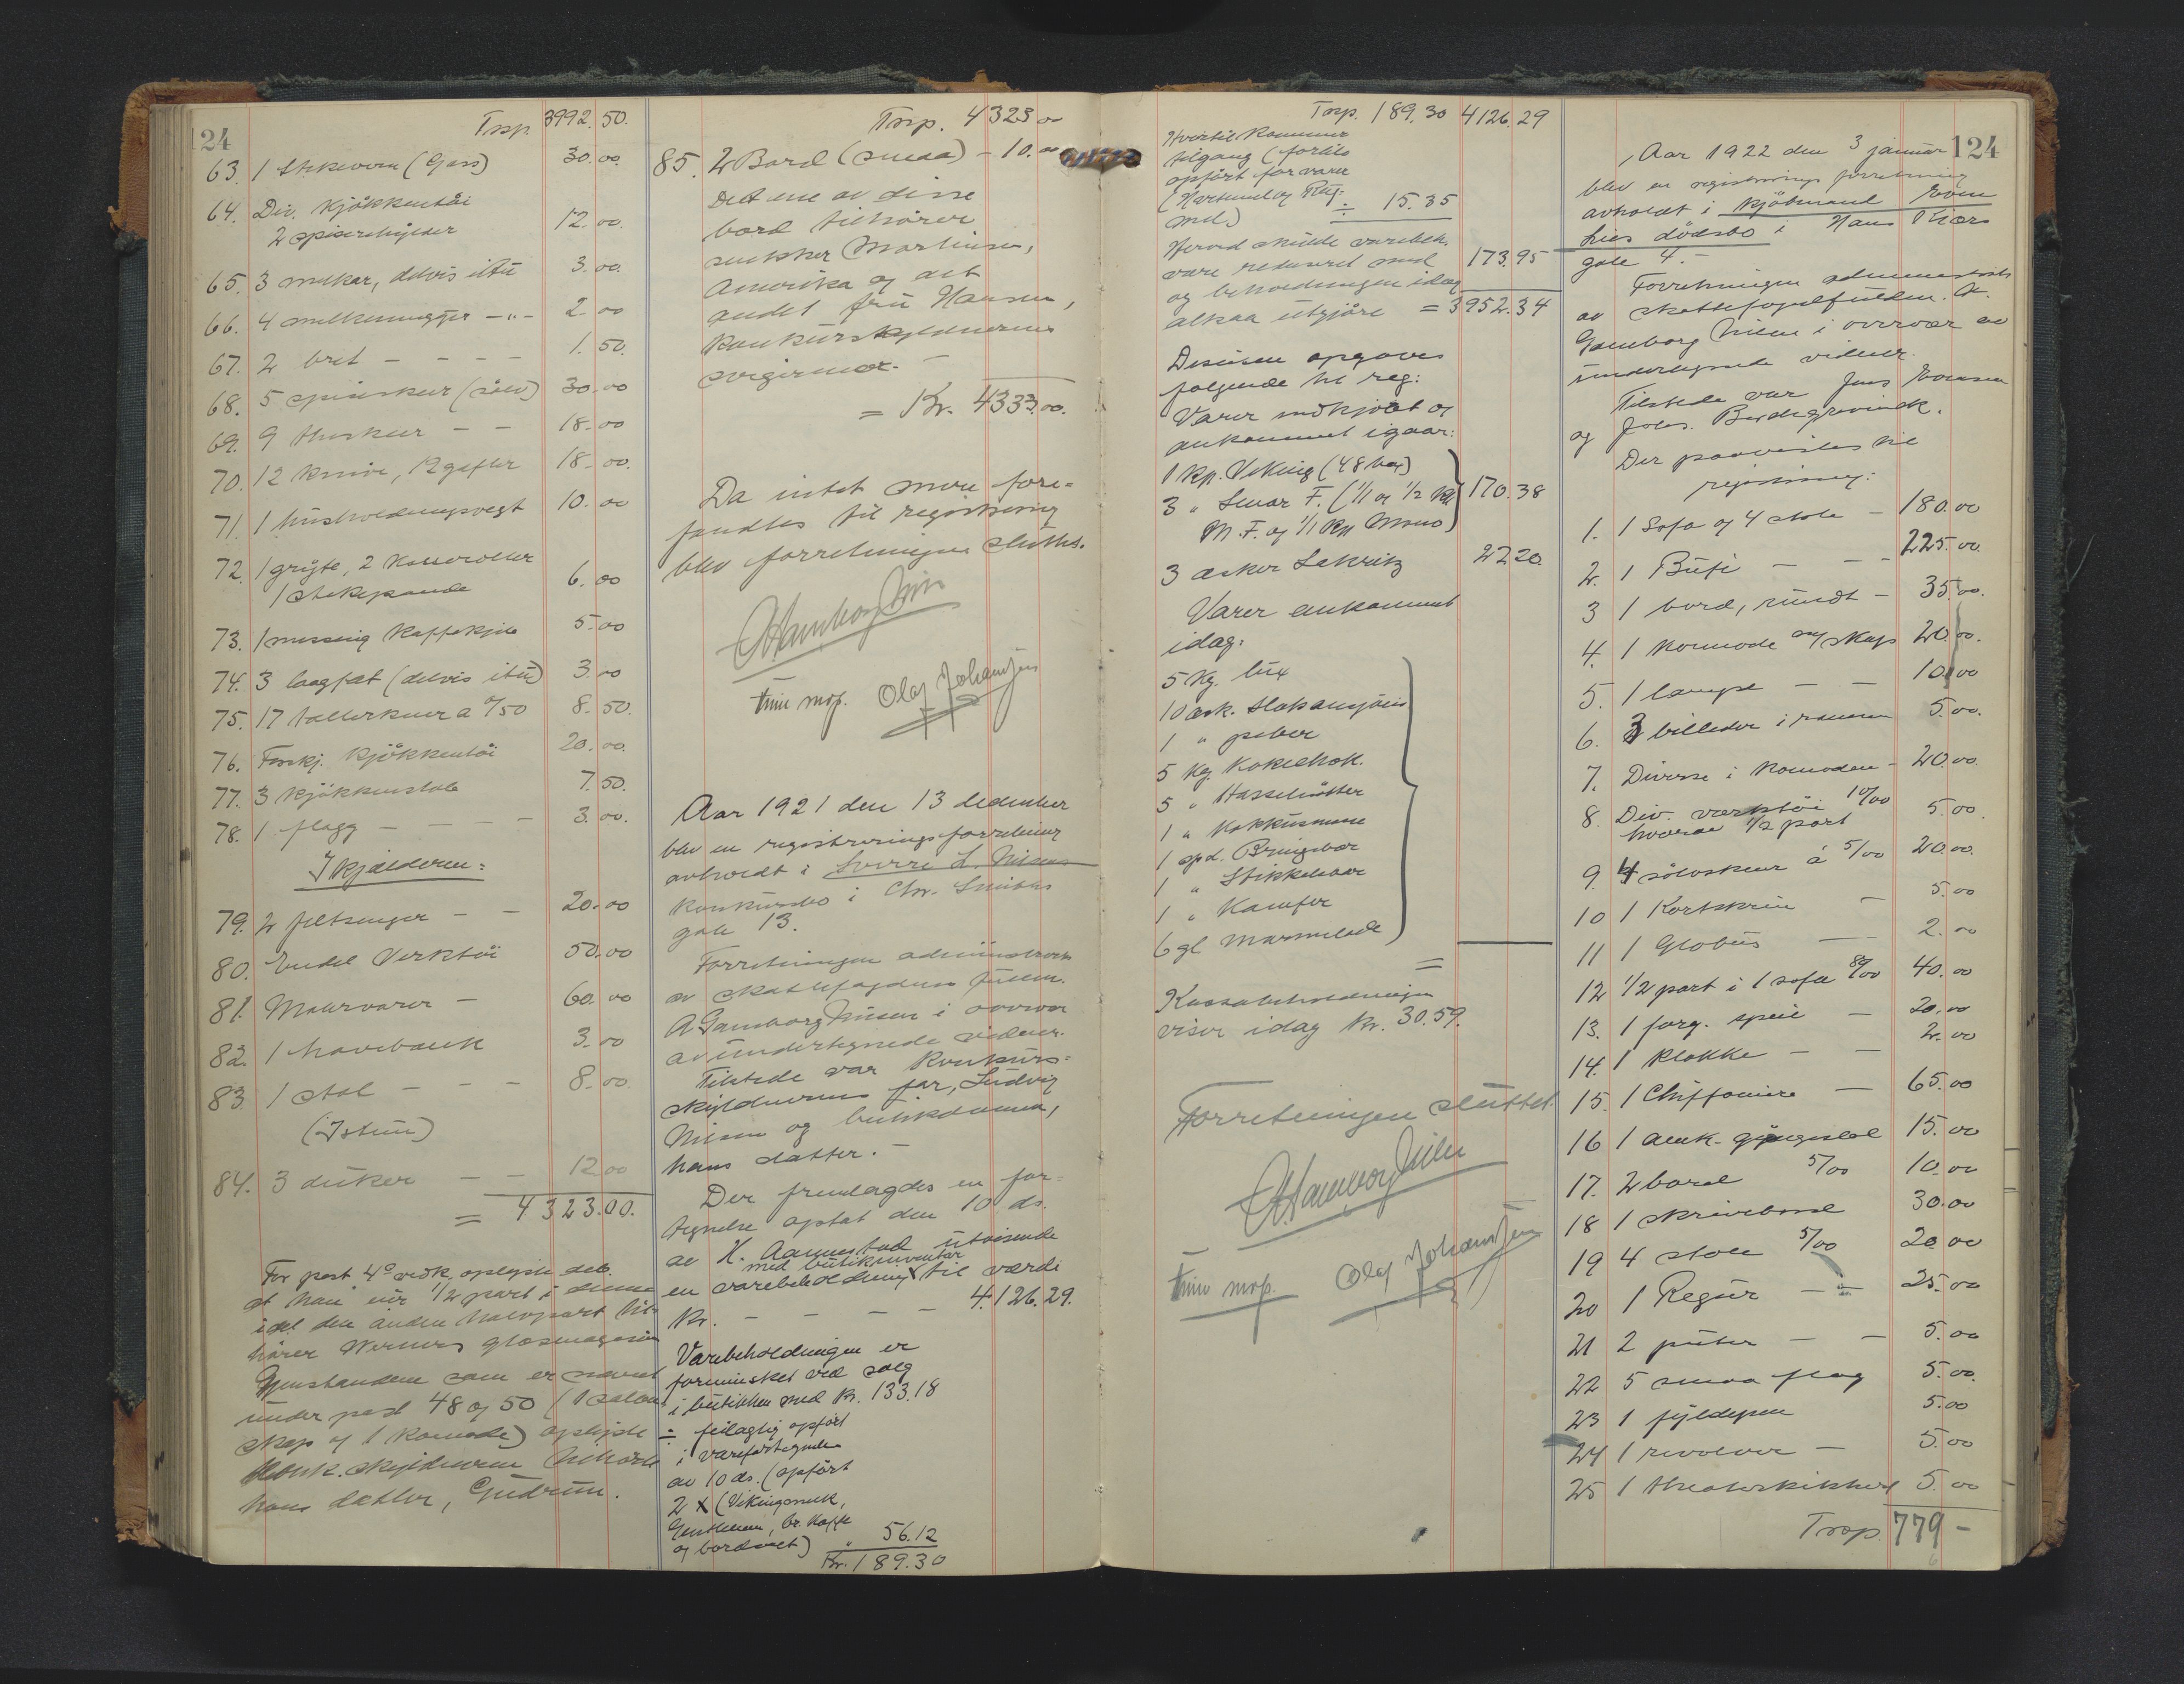 124
Trsp. 3992.50.
63. 1 (Gass) 30.00.
64. Div. Kjökkentöi
2 12.00.
65. 3 melkar, delvis itu 3.00.
66. 4 melkemugger -"- 2.00
67. 2 bret - - - - 1.50.
68. 5 spiseskeer (sölv) 30.00
69. 9 theskeer - - 18.00
70. 12 knive, 12 gafler 18.00.
71. 1 husholdningsvegt 10.00
72. 1 gryte, 2 Kasseroller
1 stekepande 6.00
73. 1 messing Kaffekjele 5.00
74. 3 (delvis itu) 3.00
75. 17 tallerkener a 0/50 8.50.
76. Forskj. Kjökkentöi 20.00.
77. 3 Kjökkenstole 7.50.
78. 1 flagg - - - - 3.00.
I Kjælderen:
79. 2 feltsenger - - 20.00
80. Endel Verktöi 50.00
81. Malervarer - 60.00
82. 1 havebænk 3.00
83. 1 stol - - - 8.00.
(I stuen)
84. 3 duker - - 12.00
= 4323.00.
For post 4° vedk. oplyste deb.
at han eier 1/2 part i denne
idet den anden halvpart til-
hører Werners glasmagasin
Gjenstandene som er nævnt
under post 48 og 50 (1
skap og 1 Komode) oplyste
skyldneren tilhører
hans datter, Gudrun.
Trsp. 4323.00
85. 2 Bord (smaa) - 10.00
Det ene av disse
bord tilhører
snekker Martinsen,
Amerika og det
andet fru Hansen,
Konkursskyldnerens
svigermor.
= Kr. 4333.00.
Da intet mere fore-
fandtes til registrering
blev forretningen sluttet.
A Gamborg Nilsen
Olaf Johansen
Aar 1921 den 13 december
blev en registreringsforretning
avholdt i Sverre L. Nilsens
Konkursbo i Chr. Smiths
gate 13.
Forretningen administrertes
av skattefogdens fuldm.
A Gamborg Nilsen i overvær
av undertegnede vidner.
Tilstede var Konkurs-
skyldnerens far, Ludvig
Nilsen og butikdamen,
hans datter. -
Der fremlagdes en for-
tegnelse optat den 10 ds.
av H. Aanestad utvisende
med butikinventar
en varebeholdning til værdi
Kr. - - - - 4.126.29.
Varebeholdningen er
forminsket ved salg
i butikken med Kr. 133.18
÷ feilagtig opført
i varefortegnelse
av 10 ds. (opført
2 x (Vikingmelk,
br. Kaffe
og bordsalt) " 56.12
Kr. 189.30
Trsp. 189.30 4126.29
Hvortil Kommer
tilgang (forlite
opført for varer
mel) ÷ 15.35
Herved skulde varebeh.
være redusert med 173.95
og beholdningen idag
altsaa utgjøre = 3952.34
Desuten opgaves
følgende til reg:
Varer indkjøpt og
ankommet igaar:
1 Kp. Viking (48 bx)
3 " Smør F. (1/1 og 1/2 Kg 170.38
M.F. og 1/1 Kg
3 æsker Lakritz 27.20.
Varer ankommet
idag:
5 Kg. lux
10 æsk.
1 " peber
5 Kg. Kokechok.
5 " Hasselnötter
1 " Kokkusmasse
1 spd. Bringebær
1 " Stikkelsbær
1 " Kamfer
6 gl Marmelade
=
Kassabeholdningen
viser idag Kr. 30.59.
Forretningen sluttet.
A Gamborg Nilsen
Olaf Johansen
124
Aar 1922 den 3 januar
blev en registrerings forretning
avholdt i Kjöbmand Even
dödsbo i Hans
gate 4. -
Forretningen administrertes
av skattefogedfuldm. A.
Gamborg Nilsen i overvær av
undertegnede vidner.
Tilstede var Jens Evensen
og Johs.
Der paavistes til
registrering:
1. 1 Sofa og 4 stole - 180.00
2. 1 Büfe - - - 225.00.
3 1 bord, rundt - 35.00.
4. 1 Komode m/ skap 20.00.
5. 1 lampe - - 10.00
6. 3 billeder i ramme 5.00.
7. Diverse i Komoden - 20.00.
8. Div. værktöi 10/00
hvorav 1/2 part 5.00.
9. 4 sölvskeer à 5/00 20.00.
10 1 Kortskrin - 5.00
11 1 Globus - 2.00
12 1/2 part i 1 sofa 80/00 40.00
13. 1 forg. speil - 20.00
14. 1 Klokke - - 2.00
15. 1 Chiffoniere - 65.00
16 1 amk. gyngestol 15.00
17. 2 bord 5/00 10.00
18 1 skrivebord 30.00
19 4 stole 5/00 20.00
20 1 Regur - - 25.00
21 2 puter - - 5.00
22 5 smaa flag 5.00.
23 1 fyldepen 5.00
24 1 revolver - 5.00
25 1 theaterkikkert 5.00
Trsp. 779 -